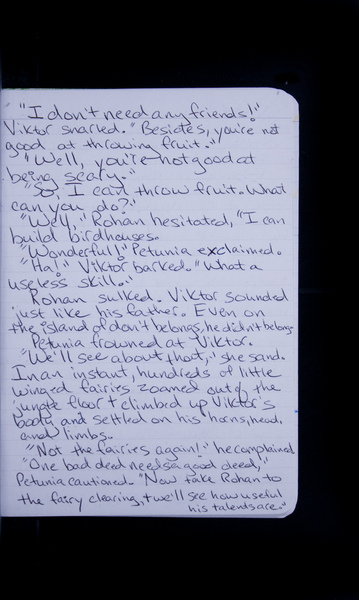 "I don't need any friends!"
Viktor snarled. "Besides, you're not
good at throwing fruit."
"Well, you're not good at
being scary."
"So, I can throw fruit. What
can you do?"
"Well," Rohan hesitated, "I can
build birdhouses.
"Wonderful!" Petunia exclaimed.
"Ha!" Viktor barked. "What a
useless skill."
Rohan sulked. Viktor sounded
just like his father. Even on
the island of don't belongs, he didn't belong.
Petunia frowned at Viktor.
"We'll see about that," she said.
In an instant, hundreds of little
winged fairies zoomed out of the
jungle floor + climbed up Viktor's
body and settled on his horns, head,
and limbs.
"Not the fairies again!" he complained
"One bad deed needs a good deed,"
Petunia cautioned. "Now take Rohan to
the fairy clearing, + we'll see how useful
his talents are."